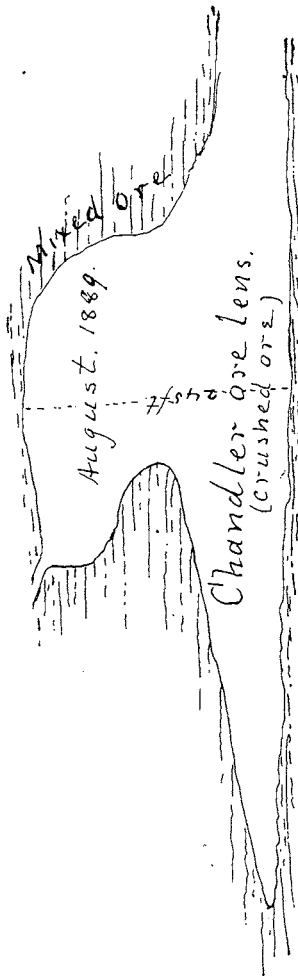 Mixed ore
August. 1889.
245 ft
Chandler ore lens.
(crushed ore)